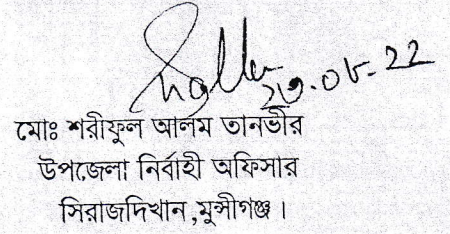 ২৩.০৮.২২
মোঃ শরীফুল আলম তানভীর
উপজেলা নির্বাহী অফিসার
সিরাজদিখান,মুন্সীগঞ্জ।